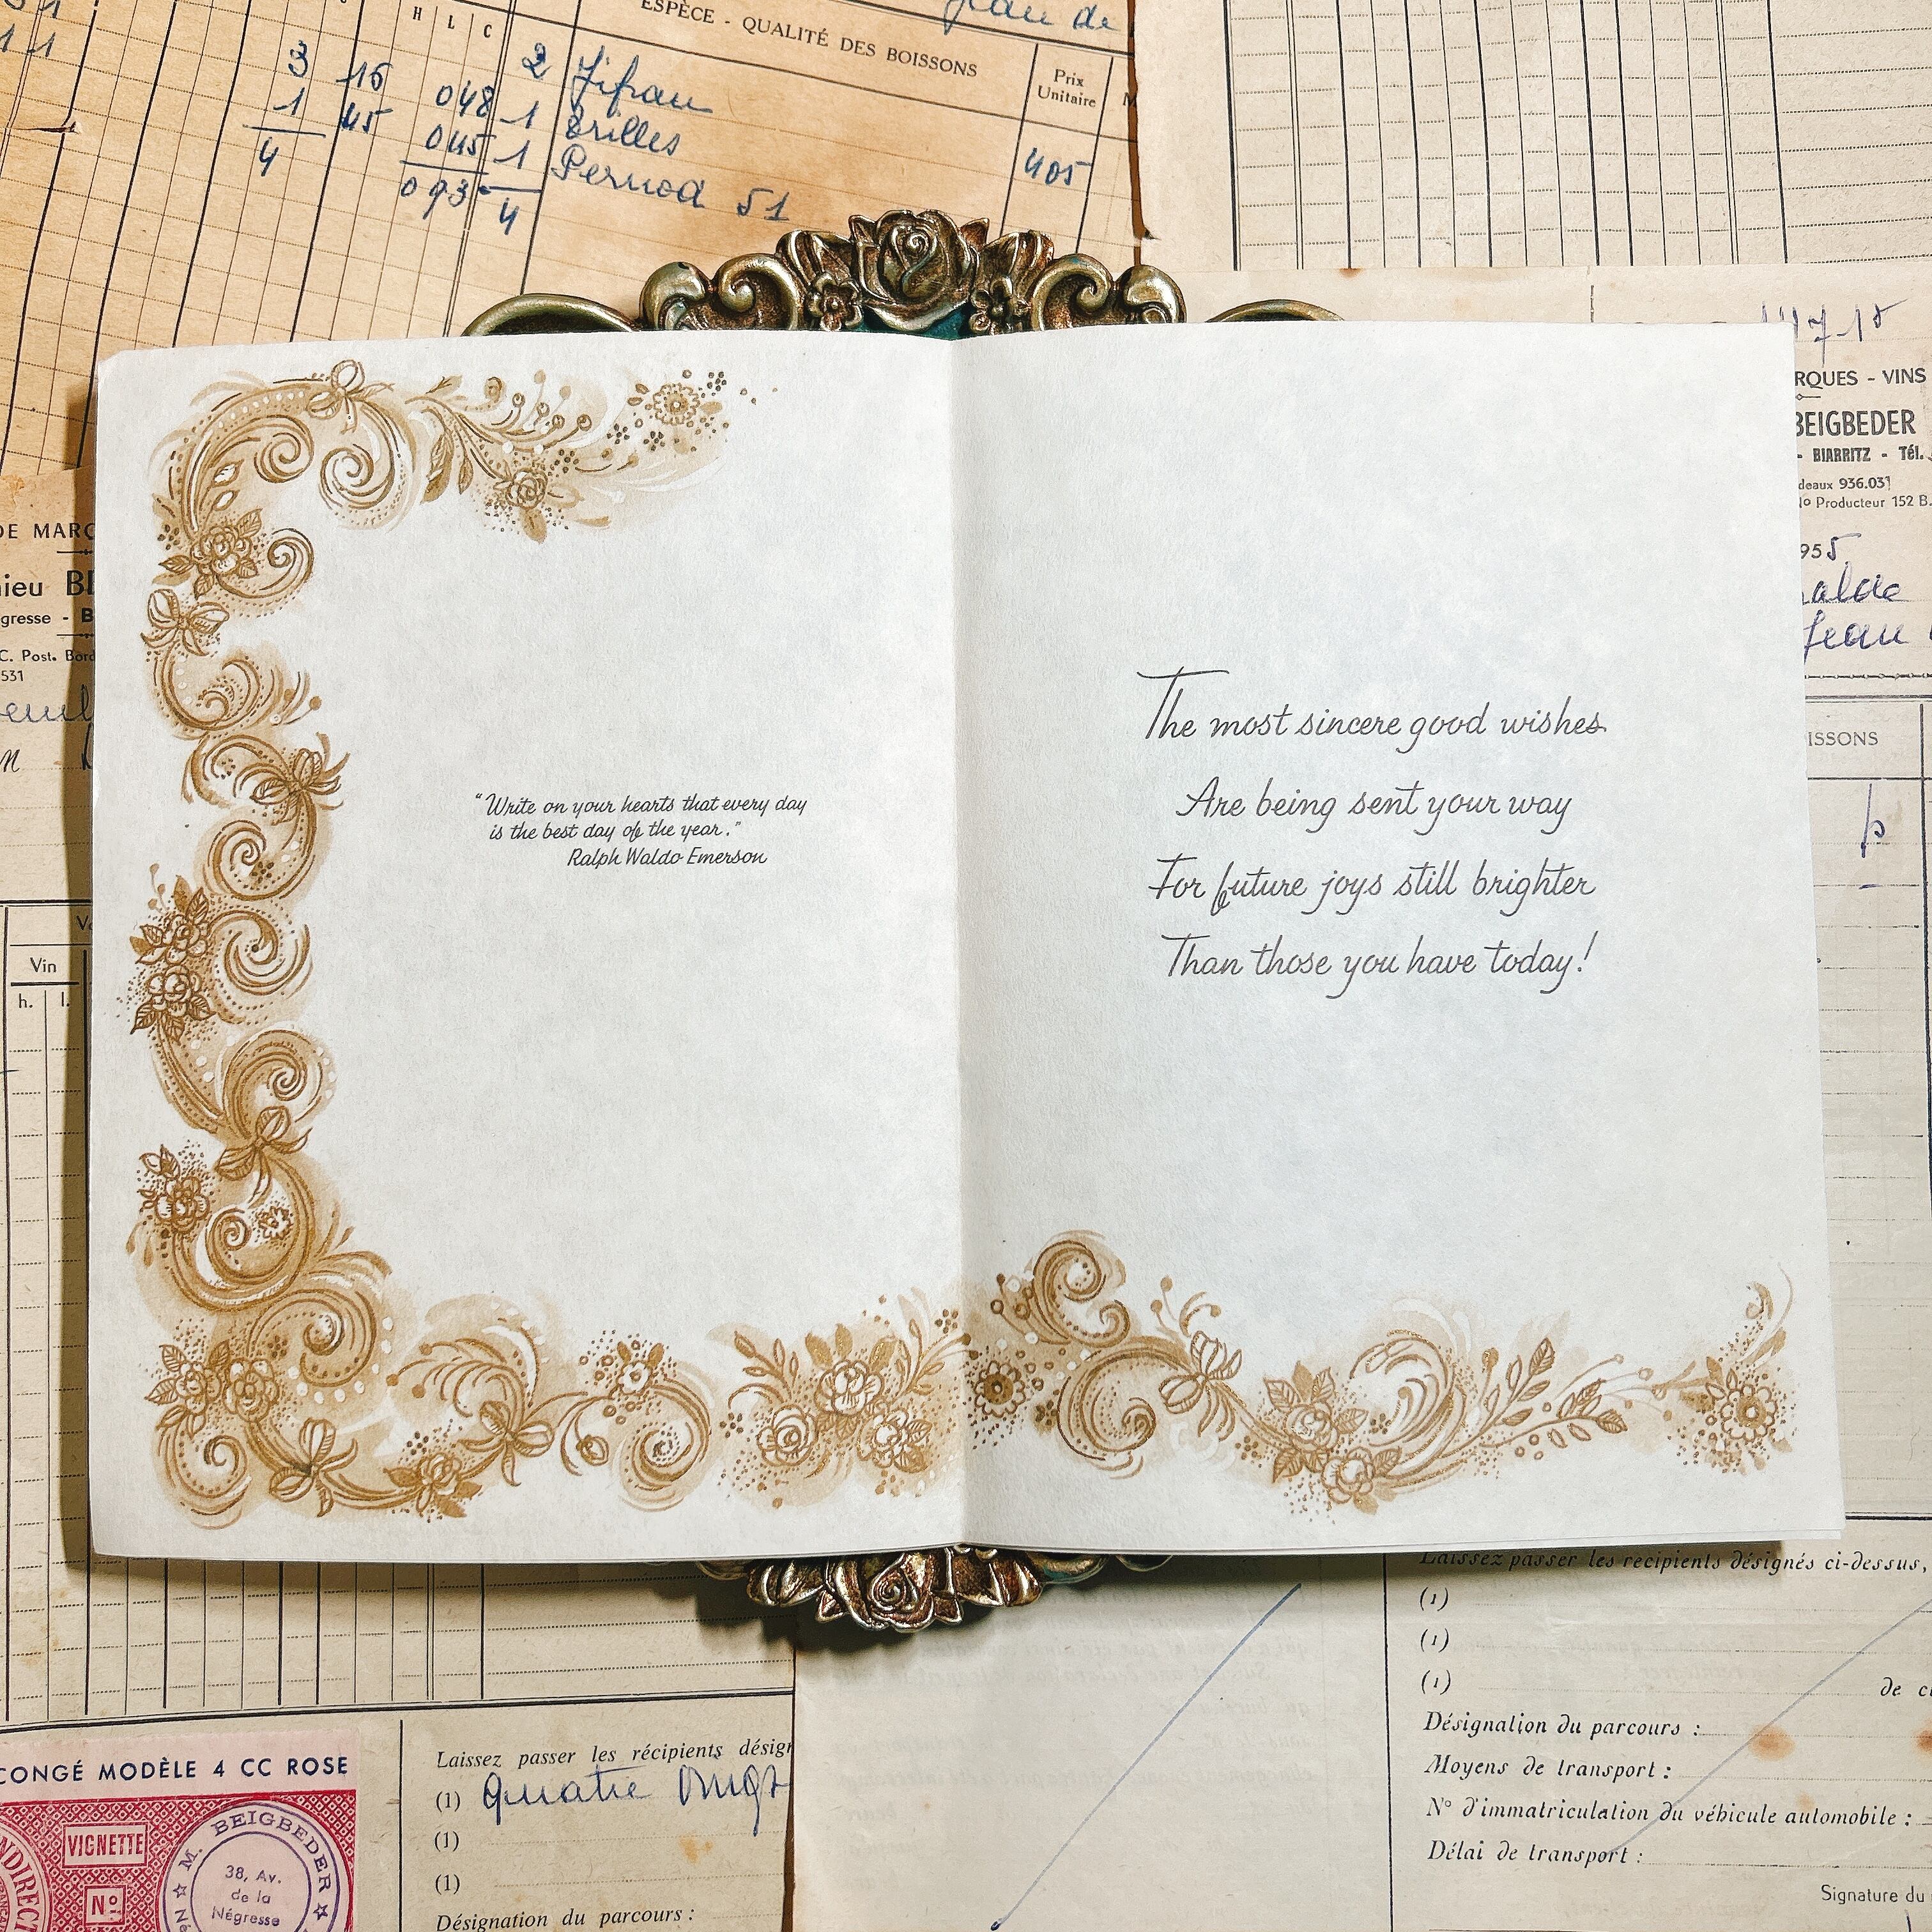 H L C
ESPÈCE - QUALITÉ DES BOISSONS
Prix
Unitaire
Jean de
3 16 048 2
1 45 045 1
4 093 1
4
Pernod 51
405
RQUES - VINS
BEIGBEDER
- BIARRITZ - Tél.
deaux 936.031
No Producteur 152 B.
955
Jean
ISSONS
DE MARQ
ieu BE
gresse - B
C. Post. Bord
531
Vin
h. l.
"Write on your hearts that every day
is the best day of the year."
Ralph Waldo Emerson
The most sincere good wishes
Are being sent your way
For future joys still brighter
Than those you have today!
CONGÉ MODÈLE 4 CC ROSE
VIGNETTE
No
INDIRECT
M. BEIGBEDER
38, Av.
de la
Négresse
Laissez passer les récipients désign
(1) quatre vingt
(1)
(1)
Désignation du parcours :
Laissez passer les récipients désignés ci-dessus,
(1)
(1)
(1)
de c
Désignation du parcours :
Moyens de transport :
N° d'immatriculation du véhicule automobile :
Délai de transport :
Signature du